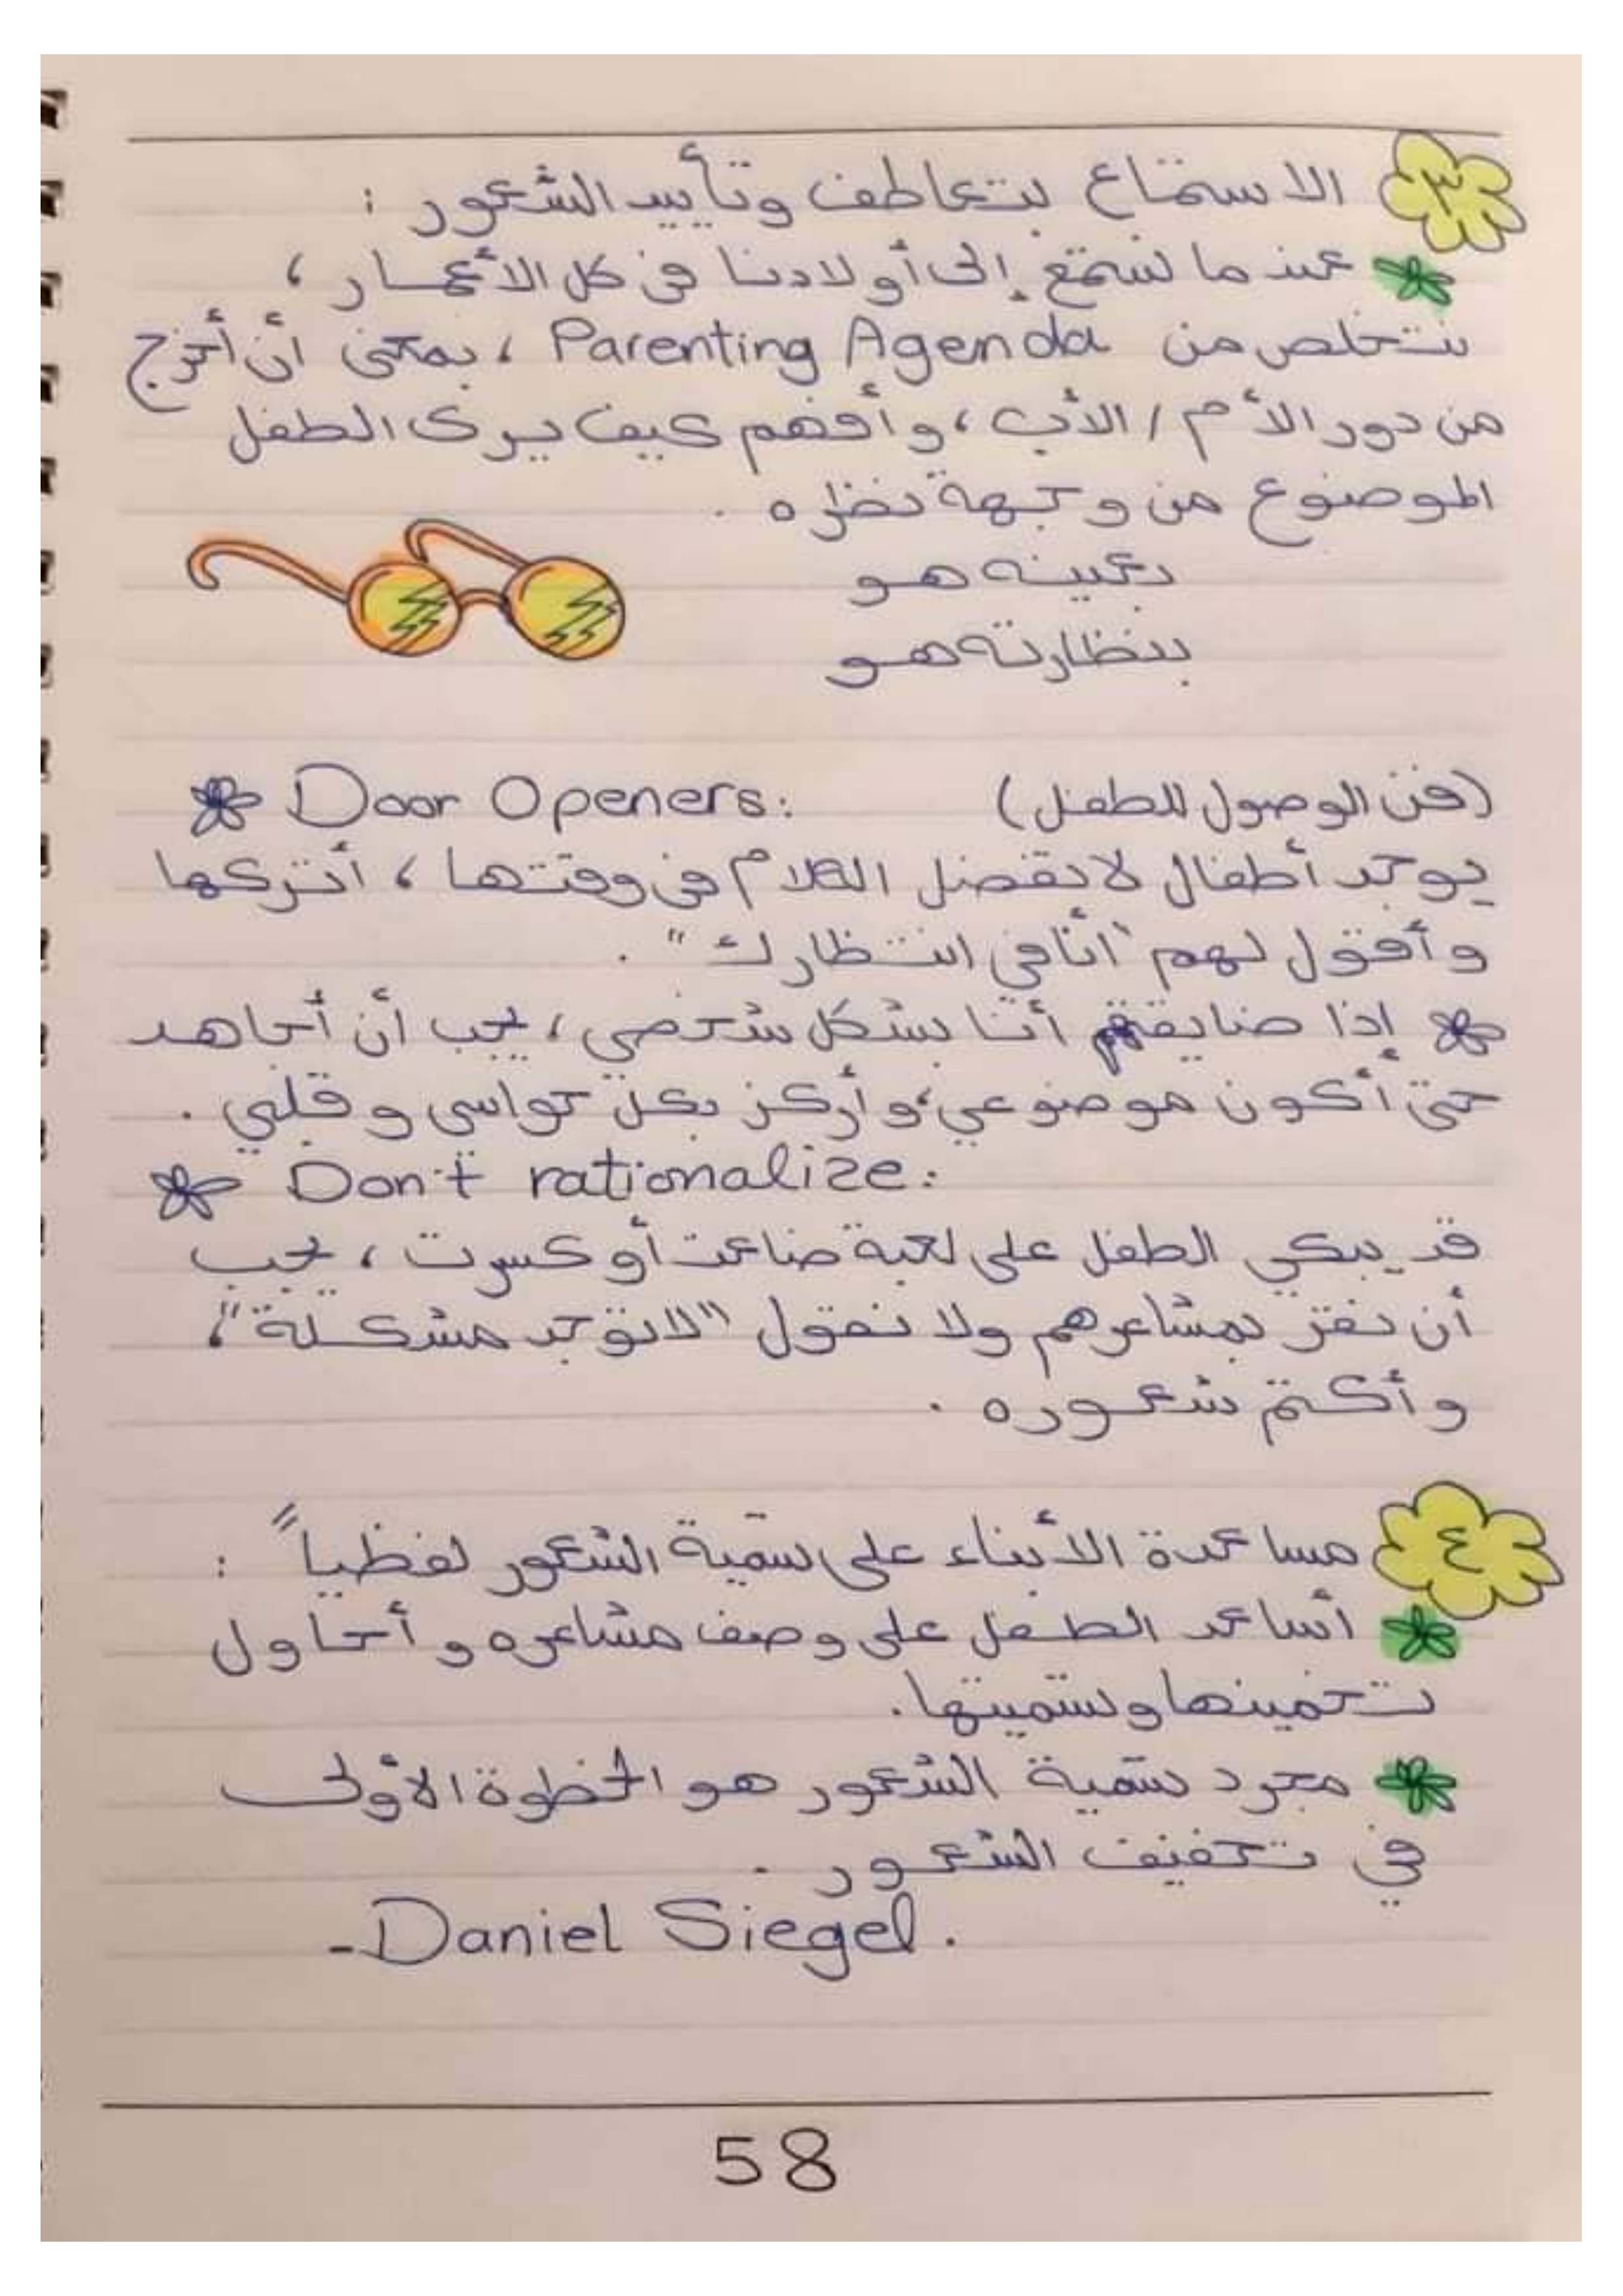 ٣ الاستماع بتعاطف وتأييد الشعور :
عندما نستمع إلى أولادنا في كل الأعمار ،
نتخلص من Parenting Agenda ، بمعنى أن أخرج
من دور الأم / الأب ، وأفهم كيف يرى الطفل
الموضوع من وجهة نظره .
بعينه هو
بنظارته هو
Door Openers: (فن الوصول للطفل)
يوجد أطفال لا تفضل الكلام في وقتها ، أتركها
وأقول لهم "أنا في انتظارك" .
إذا ضايقتهم أنا بشكل شخصي ، يجب أن أجاهد
حتى أكون موضوعي ، وأركز بكل حواسي وقلبي .
Don't rationalize:
قد يبكي الطفل على لعبة ضاعت أو كسرت ، يجب
أن نقر بمشاعرهم ولا نقول "لا توجد مشكلة" ،
وأكتم شعوره .
٤ مساعدة الأبناء على تسمية الشعور لفظياً :
أساعد الطفل على وصف مشاعره وأحاول
تخمينها وتسميتها .
مجرد تسمية الشعور هو الخطوة الأولى
في تخفيف الشعور .
-Daniel Siegel.
58